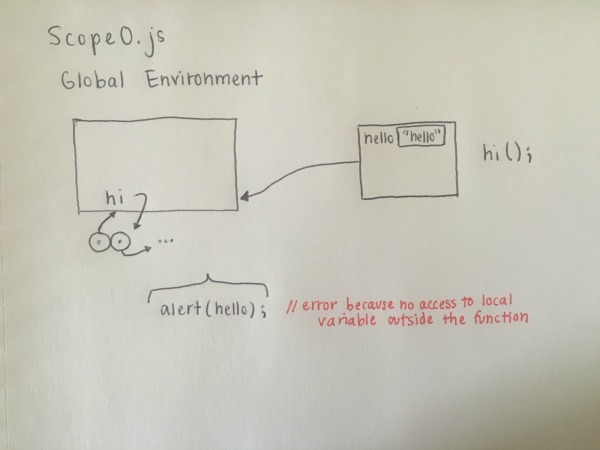 Scope0.js
Global Environment
hello "hello"
hi();
hi
...
alert(hello);
// error because no access to local
variable outside the function